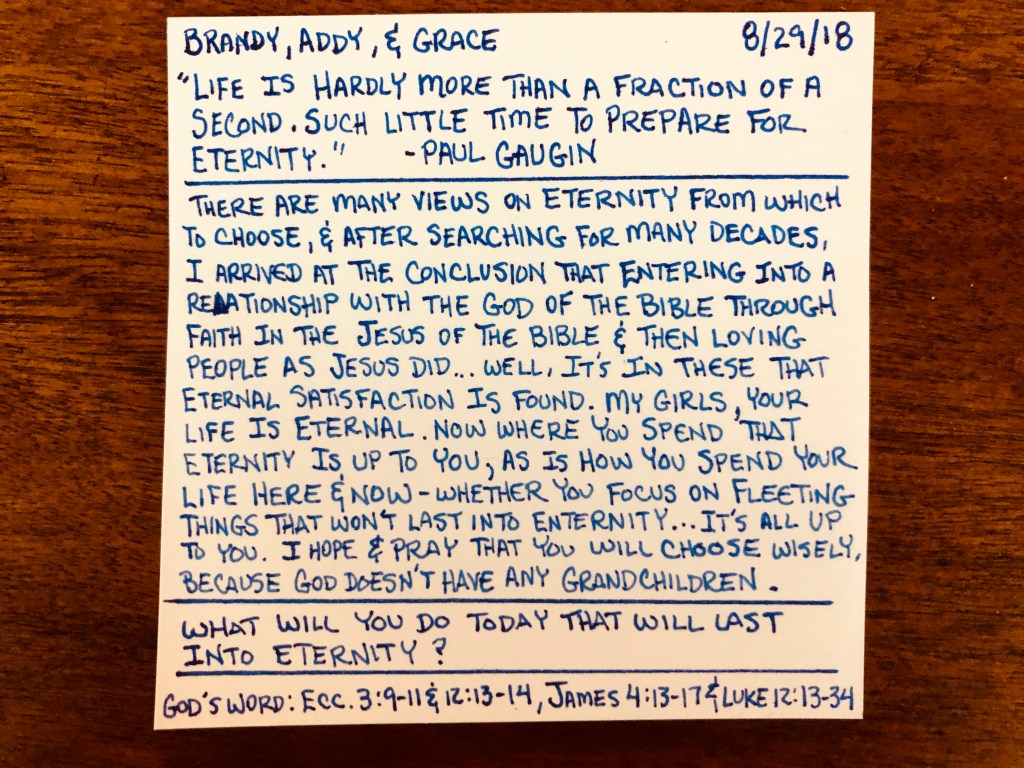 BRANDY, ADDY, & GRACE 8/29/18
"LIFE IS HARDLY MORE THAN A FRACTION OF A
SECOND. SUCH LITTLE TIME TO PREPARE FOR
ETERNITY." -PAUL GAUGIN
THERE ARE MANY VIEWS ON ETERNITY FROM WHICH
TO CHOOSE, & AFTER SEARCHING FOR MANY DECADES,
I ARRIVED AT THE CONCLUSION THAT ENTERING INTO A
RELATIONSHIP WITH THE GOD OF THE BIBLE THROUGH
FAITH IN THE JESUS OF THE BIBLE & THEN LOVING
PEOPLE AS JESUS DID... WELL, IT'S IN THESE THAT
ETERNAL SATISFACTION IS FOUND. MY GIRLS, YOUR
LIFE IS ETERNAL. NOW WHERE YOU SPEND THAT
ETERNITY IS UP TO YOU, AS IS HOW YOU SPEND YOUR
LIFE HERE & NOW - WHETHER YOU FOCUS ON FLEETING
THINGS THAT WON'T LAST INTO ENTERNITY... IT'S ALL UP
TO YOU. I HOPE & PRAY THAT YOU WILL CHOOSE WISELY,
BECAUSE GOD DOESN'T HAVE ANY GRANDCHILDREN.
WHAT WILL YOU DO TODAY THAT WILL LAST
INTO ETERNITY?
GOD'S WORD: ECC. 3:9-11 & 12:13-14, JAMES 4:13-17 & LUKE 12:13-34